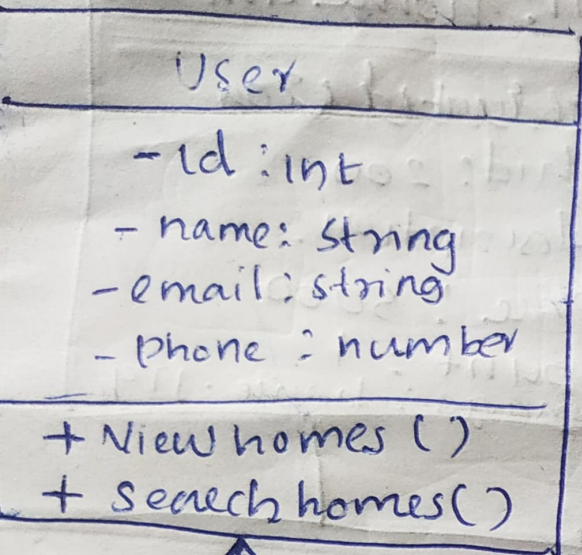 User
- id : int
- name : string
- email : string
- phone : number
+ Viewhomes ( )
+ Searchhomes( )